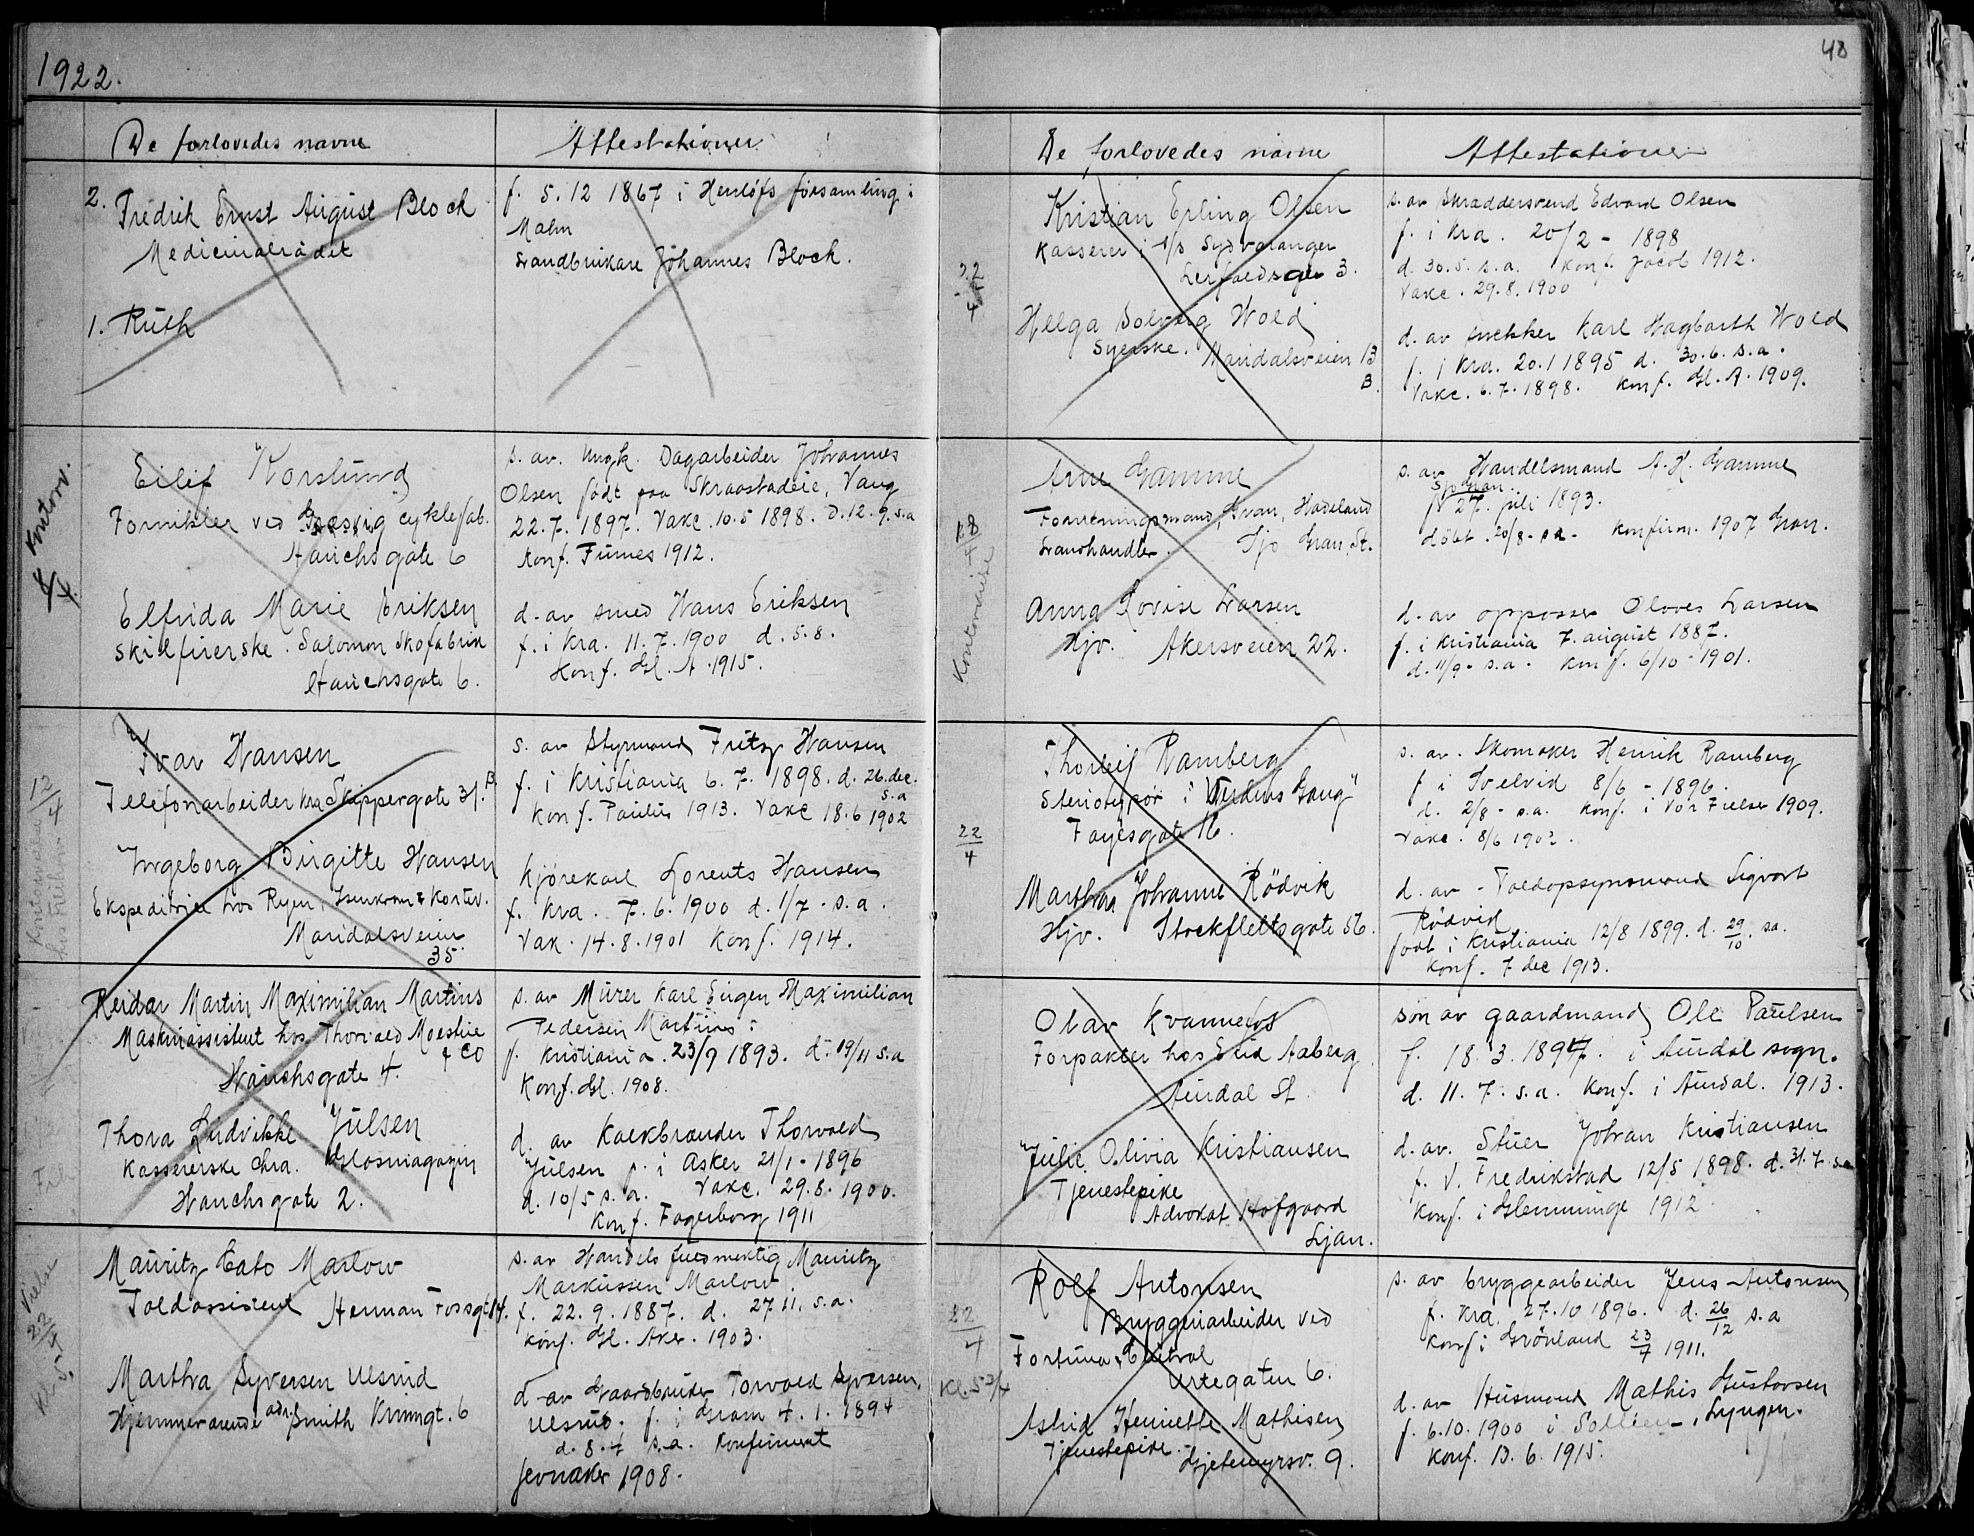 1922.
De forlovedes navne
Attestationer
2. Fredrik Ernst August Block
Medicinalrådet
1. Ruth
f. 5.12 1867 i församling i
Malm
Johannes Block.
8/4 Kontorv.
Eilif Korslund
Fornikler ved cyklefab.
Hauchsgate 6
Elfrida Marie Eriksen
Salomon Skofabrik
Hauchsgate 6.
s. av. Ungk. Dagarbeider Johannes
Olsen født paa Skraastadeie, Vang
22.7. 1897. Vakc. 10.5 1898. D. 12.9. s.a
Konf. Furnes 1912.
d. av smed Hans Eriksen
f. i Kra. 11.7. 1900 d. 5.8.
Konf. Gl. A. 1915.
12/4
Ivar Hansen
Telefonarbeider Kra Skippergate 31.B
Ingeborg Birgitte Hansen
Ekspeditrice hos Ryen,
Maridalsveien
35.
s. av Styrmand Fritz Hansen
f. i Kristiania 6.7. 1898. d. 26. dec.
s.a
Konf. Paulus 1913. Vakc 18.6 1902
Kjørekarl Lorents Hansen
f. Kra. 7.6. 1900 d. 1/7. s.a.
Vak. 14.8.1901 Konf. 1914.
Reidar Martin Maximilian Martins
Maskinassistent hos Thorvald Moestue
& Co
Hauchsgate 4.
Thora Ludvikke Julsen
Kassererske Chra. Glasmagazin
Hauchsgate 2.
s. av Murer Karl Eugen Maximilian
Pedersen Martins i
f. Kristiania. 23/9 1893. d. 19/11 s.a
Konf. Gl. 1908.
d. av Kalkbrænder Thorvald
Julsen f. i Asker 21/1 - 1896
d. 10/5 s.a. Vakc. 29.8. 1900.
Konf. Fagerborg 1911
Vielse
22/4
Kl. 5.
Mauritz Cato Marlow
Toldassistent Herman Fossgt 14.
Martha Syversen Ulsrud
Hjemmeværende adr. Smith Krummgt. 6
s. av Handels fuldmektig Mauritz
Markussen Marlow
f. 22.9. 1887. d. 27.11. s.a.
Konf. Gl. Aker. 1903.
d. av Gaardbruker Torvald Syversen,
Ulsrud. f. i Gram 4.1. 1894
d. 8.4 s.a. Konfirmert
Jevnaker 1908.
48
De forlovedes navne
Attestationer
22/4
Kristian Erling Olsen
Kasserer i A/S Sydvaranger
3.
Helga Solveig Wold
Syerske. Maridalsveien 13
B.
s. av Skræddersvend Edvard Olsen
f. i Kra. 20/2 - 1898
d. 30.5. s.a. Konf. Jacob 1912.
Vakc. 29.8.1900
d. av snekker Karl Hagbarth Wold
f. i Kra. 20.1 1895 d. 30.6. s.a.
Vakc. 6.7. 1898. Konf. Gl. A. 1909.
Arne Gamme
Forretningsmand, Gran, Hadeland
Gran St.
Anna Lovise Larsen
Hjv. Akersveien 22.
s. av Handelsmand A. H. Gamme
f. 27. juli 1893.
døbt. 20/8 - s.a. Konfirm. 1907 Gran.
d. av oppasser Olaves Larsen
f. i Kristiania 7. august 1887.
d. 11/9 - s.a. Konf. 6/10 - 1901.
22/4
Thorleif Ramberg
Steriotypør i "Verdens Gang"
Fayesgate 16.
Martha Johanne Rødvik
Hjv. Stockfletsgate 56.
s. av. Skomaker Henrik Ramberg
f i Svelvik 8/6 - 1896.
d. 2/8 - s.a. Konf. i Vor Frelser 1909.
Vakc. 8/6 1902.
d. av - Toldopsynsmand Sigvart
Rødvik
født i Kristiania 12/8 1899. d. 29/10. s.a.
Konf. 7 dec 1913.
Olav Kvannefos
Forpakter hos Aaberg
Aurdal St.
Julie Olivia Kristiansen
Tjenestepike
Advokat Hofgaard
Ljan.
søn av gaardmand Ole Paulsen
f. 18.3. 1897. i Aurdal sogn.
d. 11.7. s.a. Konf. i Aurdal. 1913.
d. av. Stuer Johan Kristiansen
f. V. Fredrikstad 12/5 1898. d. 31.7. s.a
Konf. i Glemminge 1912
22/4
Rolf Antonsen
Bryggeriarbeider ved
Fortuna, Central
Urtegaten 6.
Astrid Henriette Mathisen
Tjenestepike.
Gjetemyrsv. 9.
s. av bryggearbeider Jens Antonsen
f. Kra. 27.10 1896. d. 26/12 s.a
Konf i Grønland 23/7 1911.
d. av Husmand Mathis Gustavsen
f. 6.10. 1900 i Lyngen.
Konf. 13.6. 1915.